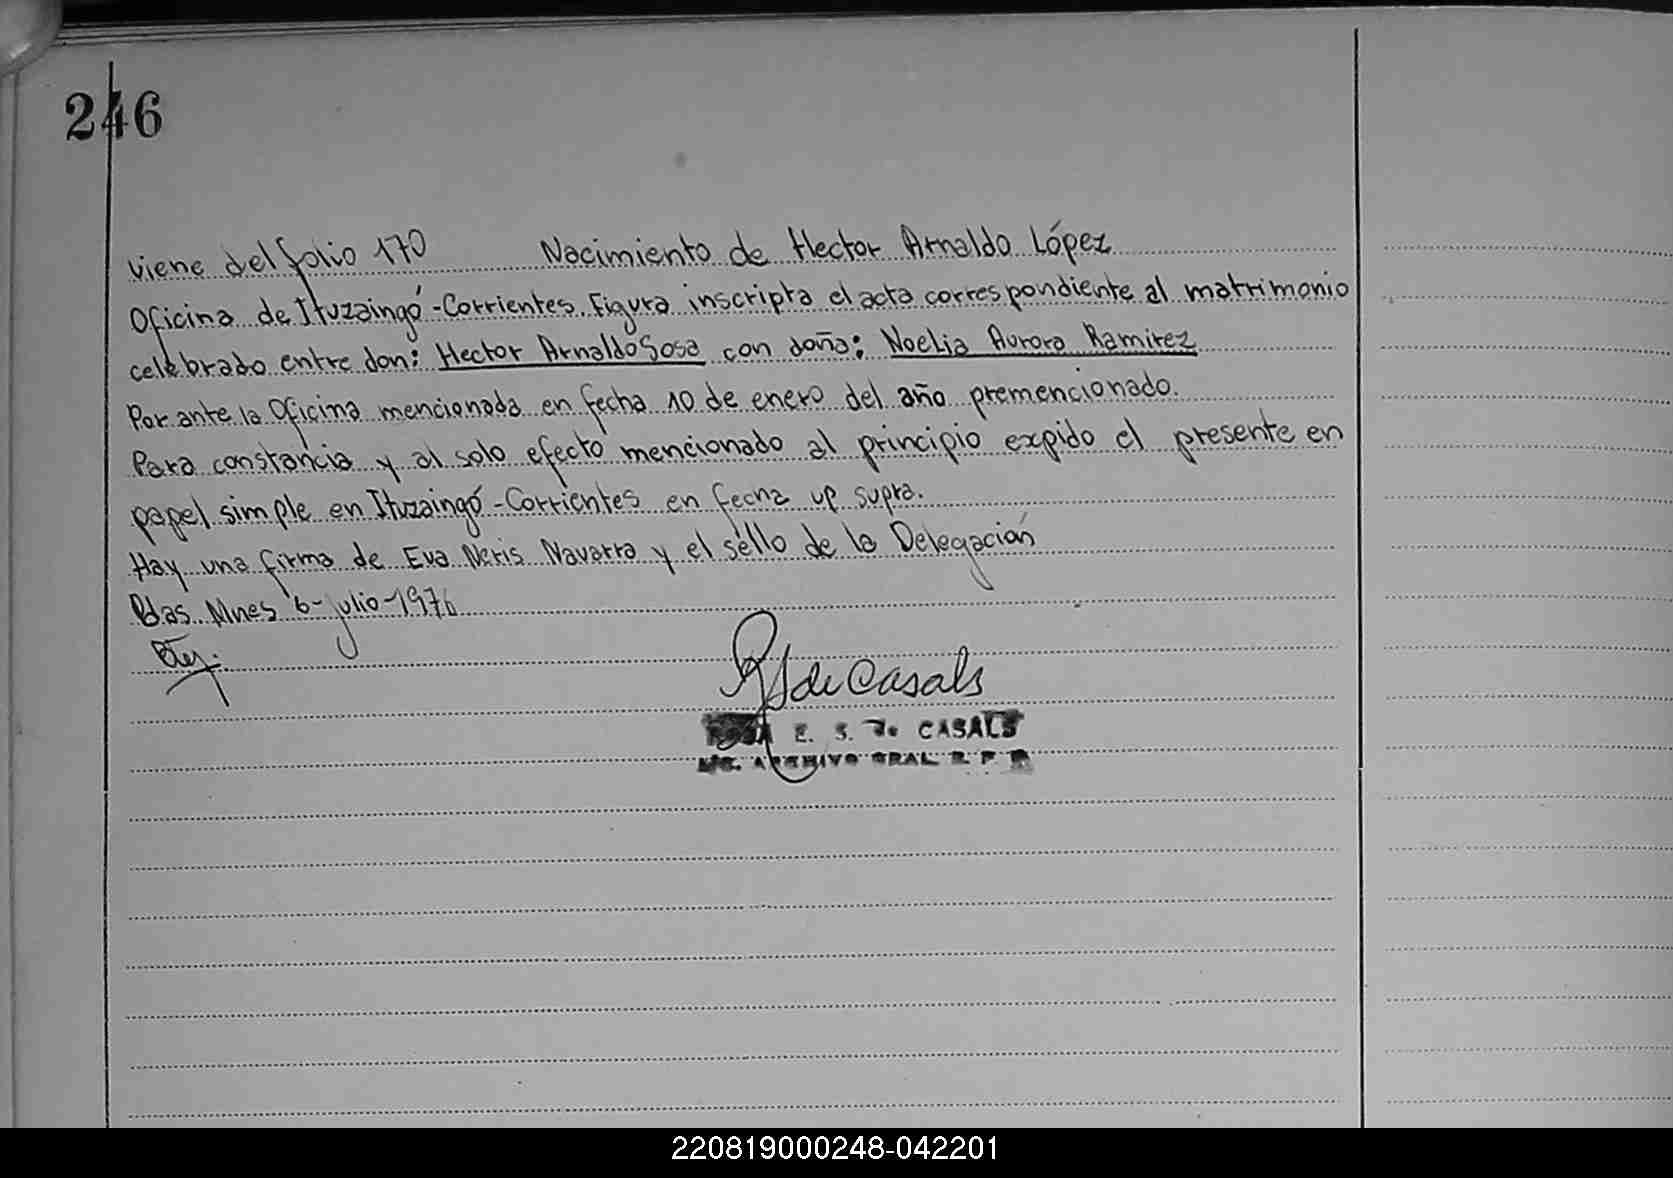 246
Viene del folio 170 Nacimiento de Hector Arnaldo López
Oficina de Ituzaingó-Corrientes. Figura inscripta el acta correspondiente al matrimonio
celebrado entre don: Hector Arnaldo Sosa con doña: Noelia Aurora Ramirez
Por ante la Oficina mencionada en fecha 10 de enero del año premencionado.
Para constancia y al solo efecto mencionado al principio expido el presente en
papel simple en Ituzaingó-Corrientes en fecha up supra.
Hay una firma de Eva Neris Navarro y el sello de la Delegación
Pdas Mnes 6-julio-1976
RS de Casals
E. S. de CASALS
ARCHIVO GRAL R P
220819000248-042201